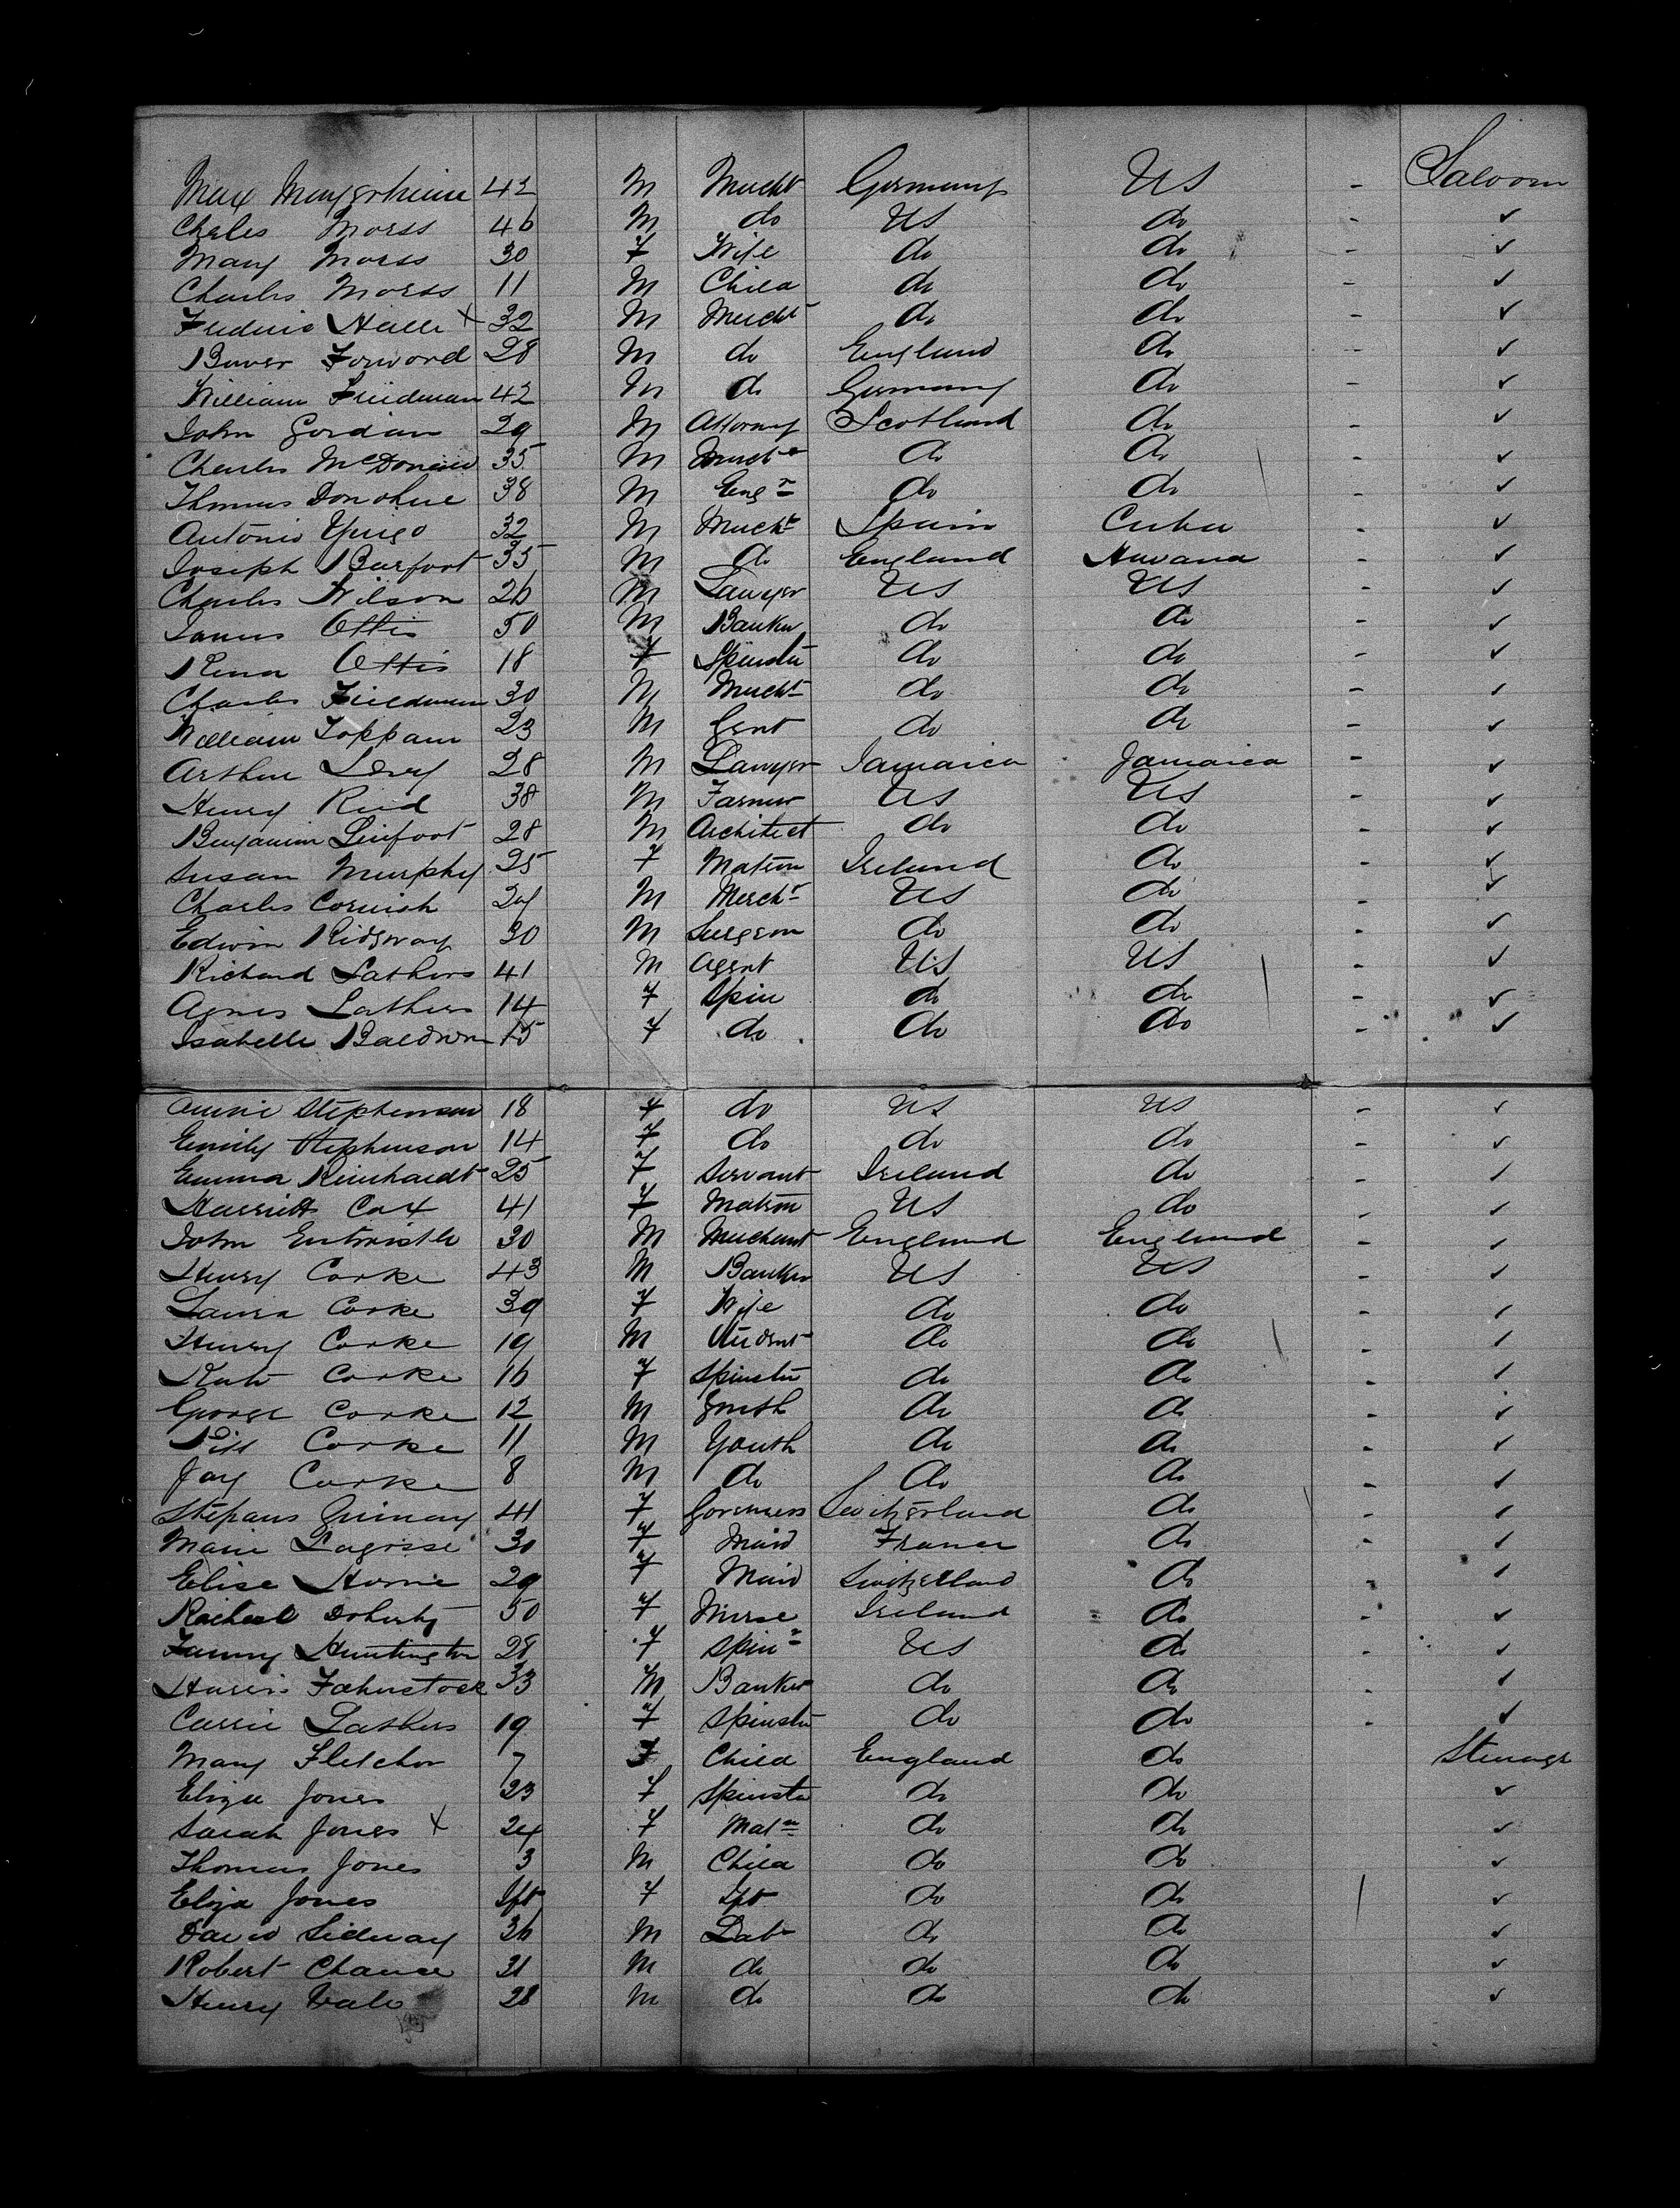 Max 42 M Mercht Germany US - Saloon
Charles Morss 46 M do US do - ✓
Mary Morss 30 F Wife do do - ✓
Charles Morss 11 M Child do do - ✓
Halle x 32 M Mercht do do - ✓
Forword 28 M do England do - ✓
William Friedman 42 M do Germany do - ✓
John Gordon 29 M Attorney Scotland do - ✓
Charles McDonald 35 M Mercht do do - ✓
Thomas Donohue 38 M Engr do do - ✓
Antonio 32 M Mercht Spain Cuba - ✓
Joseph Barfoot 35 M do England Havana - ✓
Charles Wilson 26 M Lawyer US US - ✓
James Ottis 50 M Banker do do - ✓
Rena Ottis 18 F Spinster do do - ✓
Charles Friedman 30 M Mercht do do - ✓
William Toppam 23 M Gent do do - ✓
Arthur Levy 28 M Lawyer Jamaica Jamaica - ✓
Henry Reid 38 M Farmer US US - ✓
Benjamin Linfoot 28 M Architect do do - ✓
Susan Murphy 25 F Matron Ireland do - ✓
Charles Cornish 24 M Mercht US do - ✓
Edwin Ridgway 30 M Surgeon do do - ✓
Richard Lathers 41 M Agent US US - ✓
Agnes Lathers 14 F Spin do do - ✓
Isabelle Baldwin 15 F do do do - ✓
Annie Stephenson 18 F do US US - ✓
Emily Stephenson 14 F do do do - ✓
Emma Reinhardt 25 F Servant Ireland do - ✓
Harriett Cox 41 F Matron US do - ✓
John Entwistle 30 M Merchant England England - ✓
Henry Cooke 43 M Banker US US - ✓
Laura Cooke 39 F Wife do do - ✓
Henry Cooke 19 M Student do do - ✓
Kate Cooke 16 F Spinster do do - ✓
George Cooke 12 M Youth do do - ✓
Pitt Cooke 11 M Youth do do - ✓
Jay Cooke 8 M do do do - ✓
41 F Governess Switzerland do - ✓
Marie Lagosse 30 F Maid France do - ✓
Elise 29 F Maid Switzerland do - ✓
Rachael Doherty 50 F Nurse Ireland do - ✓
Fanny Huntington 28 F Spinr US do - ✓
Harris Fahnstock 33 M Banker do do - ✓
Carrie Lathers 19 F Spinster do do - ✓
Mary Fletcher 7 F Child England do Steerage
Eliza Jones 23 F Spinster do do ✓
Sarah Jones x 24 F Matn do do ✓
Thomas Jones 3 M Child do do ✓
Eliza Jones Ift F Ift do do ✓
David Sidway 36 M Labr do do ✓
Robert Chance 31 M do do do ✓
Henry Vale 28 M do do do ✓